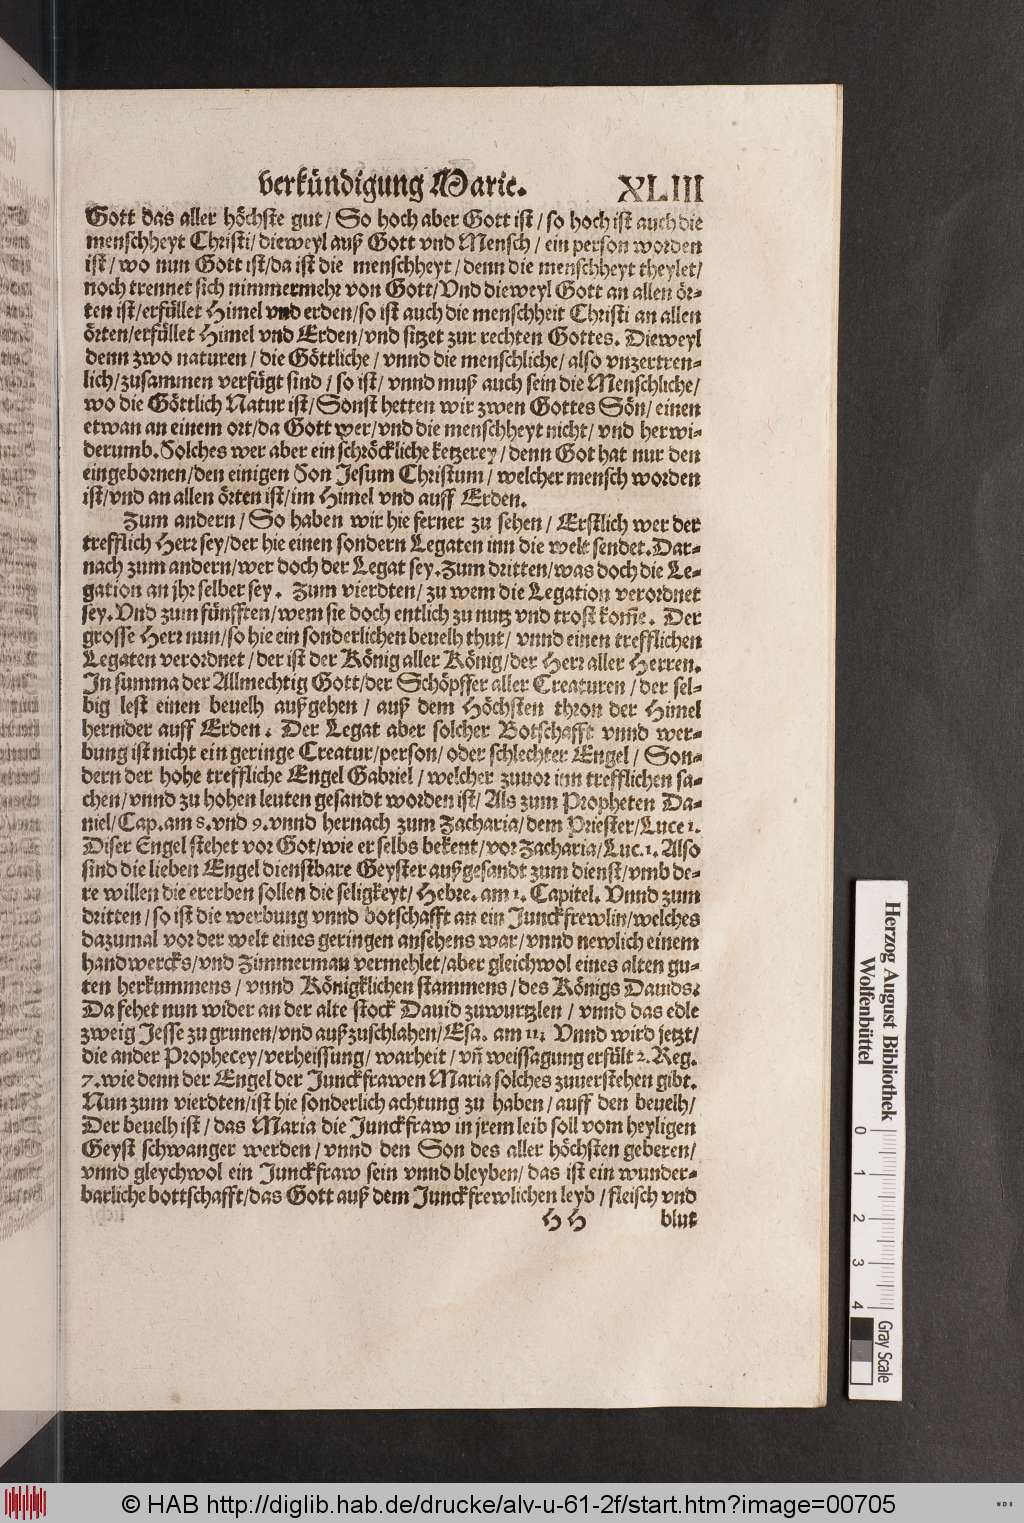 verkündigung Marie. XLIII
Gott das aller höchste gut/ So hoch aber Gott ist/ so hoch ist auch die
menschheyt Christi/ dieweyl auß Gott vnd Mensch/ ein person worden
ist/ wo nun Gott ist/da ist die menschheyt/ denn die menschheyt theylet/
noch trennet sich nimmermehr von Gott/Vnd dieweyl Gott an allen ör-
ten ist/erfüllet Himel vnd erden/so ist auch die menschheit Christi an allen
örten/erfüllet Himel vnd Erden/vnd sitzet zur rechten Gottes. Dieweyl
denn zwo naturen/ die Göttliche/ vnnd die menschliche/ also vnzertren-
lich/zusammen verfügt sind/ so ist/ vnnd muß auch sein die Menschliche/
wo die Göttlich Natur ist/Sonst hetten wir zwen Gottes Sön/ einen
etwan an einem ort/da Gott wer/vnd die menschheyt nicht/ vnd herwi-
derumb. Solches wer aber ein schröckliche ketzerey/ denn Got hat nur den
eingebornen/den einigen Son Jesum Christum/ welcher mensch worden
ist/vnd an allen örten ist/im Himel vnd auff Erden.
Zum andern/ So haben wir hie ferner zu sehen/ Erstlich wer der
trefflich Herr sey/der hie einen sondern Legaten inn die welt sendet. Dar-
nach zum andern/wer doch der Legat sey. Zum dritten/was doch die Le-
gation an jhr selber sey. Zum vierdten/ zu wem die Legation verordnet
sey. Vnd zum fünfften/wem sie doch entlich zu nutz vnd trost kom̃e. Der
grosse Herr nun/so hie ein sonderlichen beuelh thut/ vnnd einen trefflichen
Legaten verordnet/ der ist der König aller König/der Herr aller Herren.
In summa der Allmechtig Gott/der Schöpffer aller Creaturen/ der sel-
big lest einen beuelh außgehen/ auß dem Höchsten thron der Himel
hernider auff Erden. Der Legat aber solcher Botschafft vnnd wer-
bung ist nicht ein geringe Creatur/person/ oder schlechter Engel/ Son-
dern der hohe treffliche Engel Gabriel/ welcher zuuor inn trefflichen sa-
chen/vnnd zu hohen leuten gesandt worden ist/ Als zum Propheten Da-
niel/Cap. am 8. vnd 9. vnnd hernach zum Zacharia/ dem Priester/Luce 1.
Diser Engel stehet vor Got/wie er selbs bekent/vor Zacharia/Luc. 1. Also
sind die lieben Engel dienstbare Geyster außgesandt zum dienst/vmb de-
re willen die ererben sollen die seligkeyt/ Hebre. am 1. Capitel. Vnnd zum
dritten/ so ist die werbung vnnd botschafft an ein Junckfrewlin/welches
dazumal vor der welt eines geringen ansehens war/vnnd newlich einem
handwercks/vnd Zimmerman vermehlet/aber gleichwol eines alten gu-
ten herkummens/ vnnd Königklichen stammens/ des Königs Dauids.
Da fehet nun wider an der alte stock Dauid zuwurtzlen/ vnnd das edle
zweig Jesse zu grunen/vnd außzuschlahen/Esa. am 11. Vnnd wird jetzt/
die ander Prophecey/verheissung/ warheit/ vñ weissagung erfült 2. Reg.
7. wie denn der Engel der Junckfrawen Maria solches zuuerstehen gibt.
Nun zum vierdten/ist hie sonderlich achtung zu haben/ auff den beuelh/
Der beuelh ist/ das Maria die Junckfraw in jrem leib soll vom heyligen
Geyst schwanger werden/ vnnd den Son des aller höchsten geberen/
vnnd gleychwol ein Junckfraw sein vnnd bleyben/ das ist ein wunder-
barliche bottschafft/das Gott auß dem Junckfrewlichen leyb/ fleisch vnd
H H blut
Herzog August Bibliothek
Wolfenbüttel
0 1 2 3 4
Gray Scale
© HAB http://diglib.hab.de/drucke/alv-u-61-2f/start.htm?image=00705